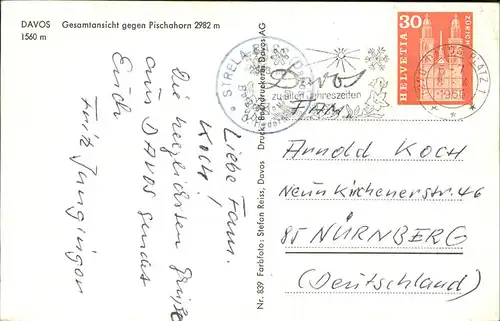 DAVOS Gesamtansicht gegen Pischahorn 2982 m
1560 m
Liebe Fam.
Koch,
Die herzlichsten Grüße
aus DAVOS sendet
Euch
Fritz Junginger
Nr. 839 Farbfoto: Stefan Reiss, Davos Druck: Buchdruckerei Davos AG
STRELA
Davos
zu allen Jahreszeiten
HELVETIA
30
ZÜRICH
DAVOS PLATZ 1
FAM.
Arnold KOCH
Neunkirchenerstr. 46
85 NÜRNBERG
(Deutschland)